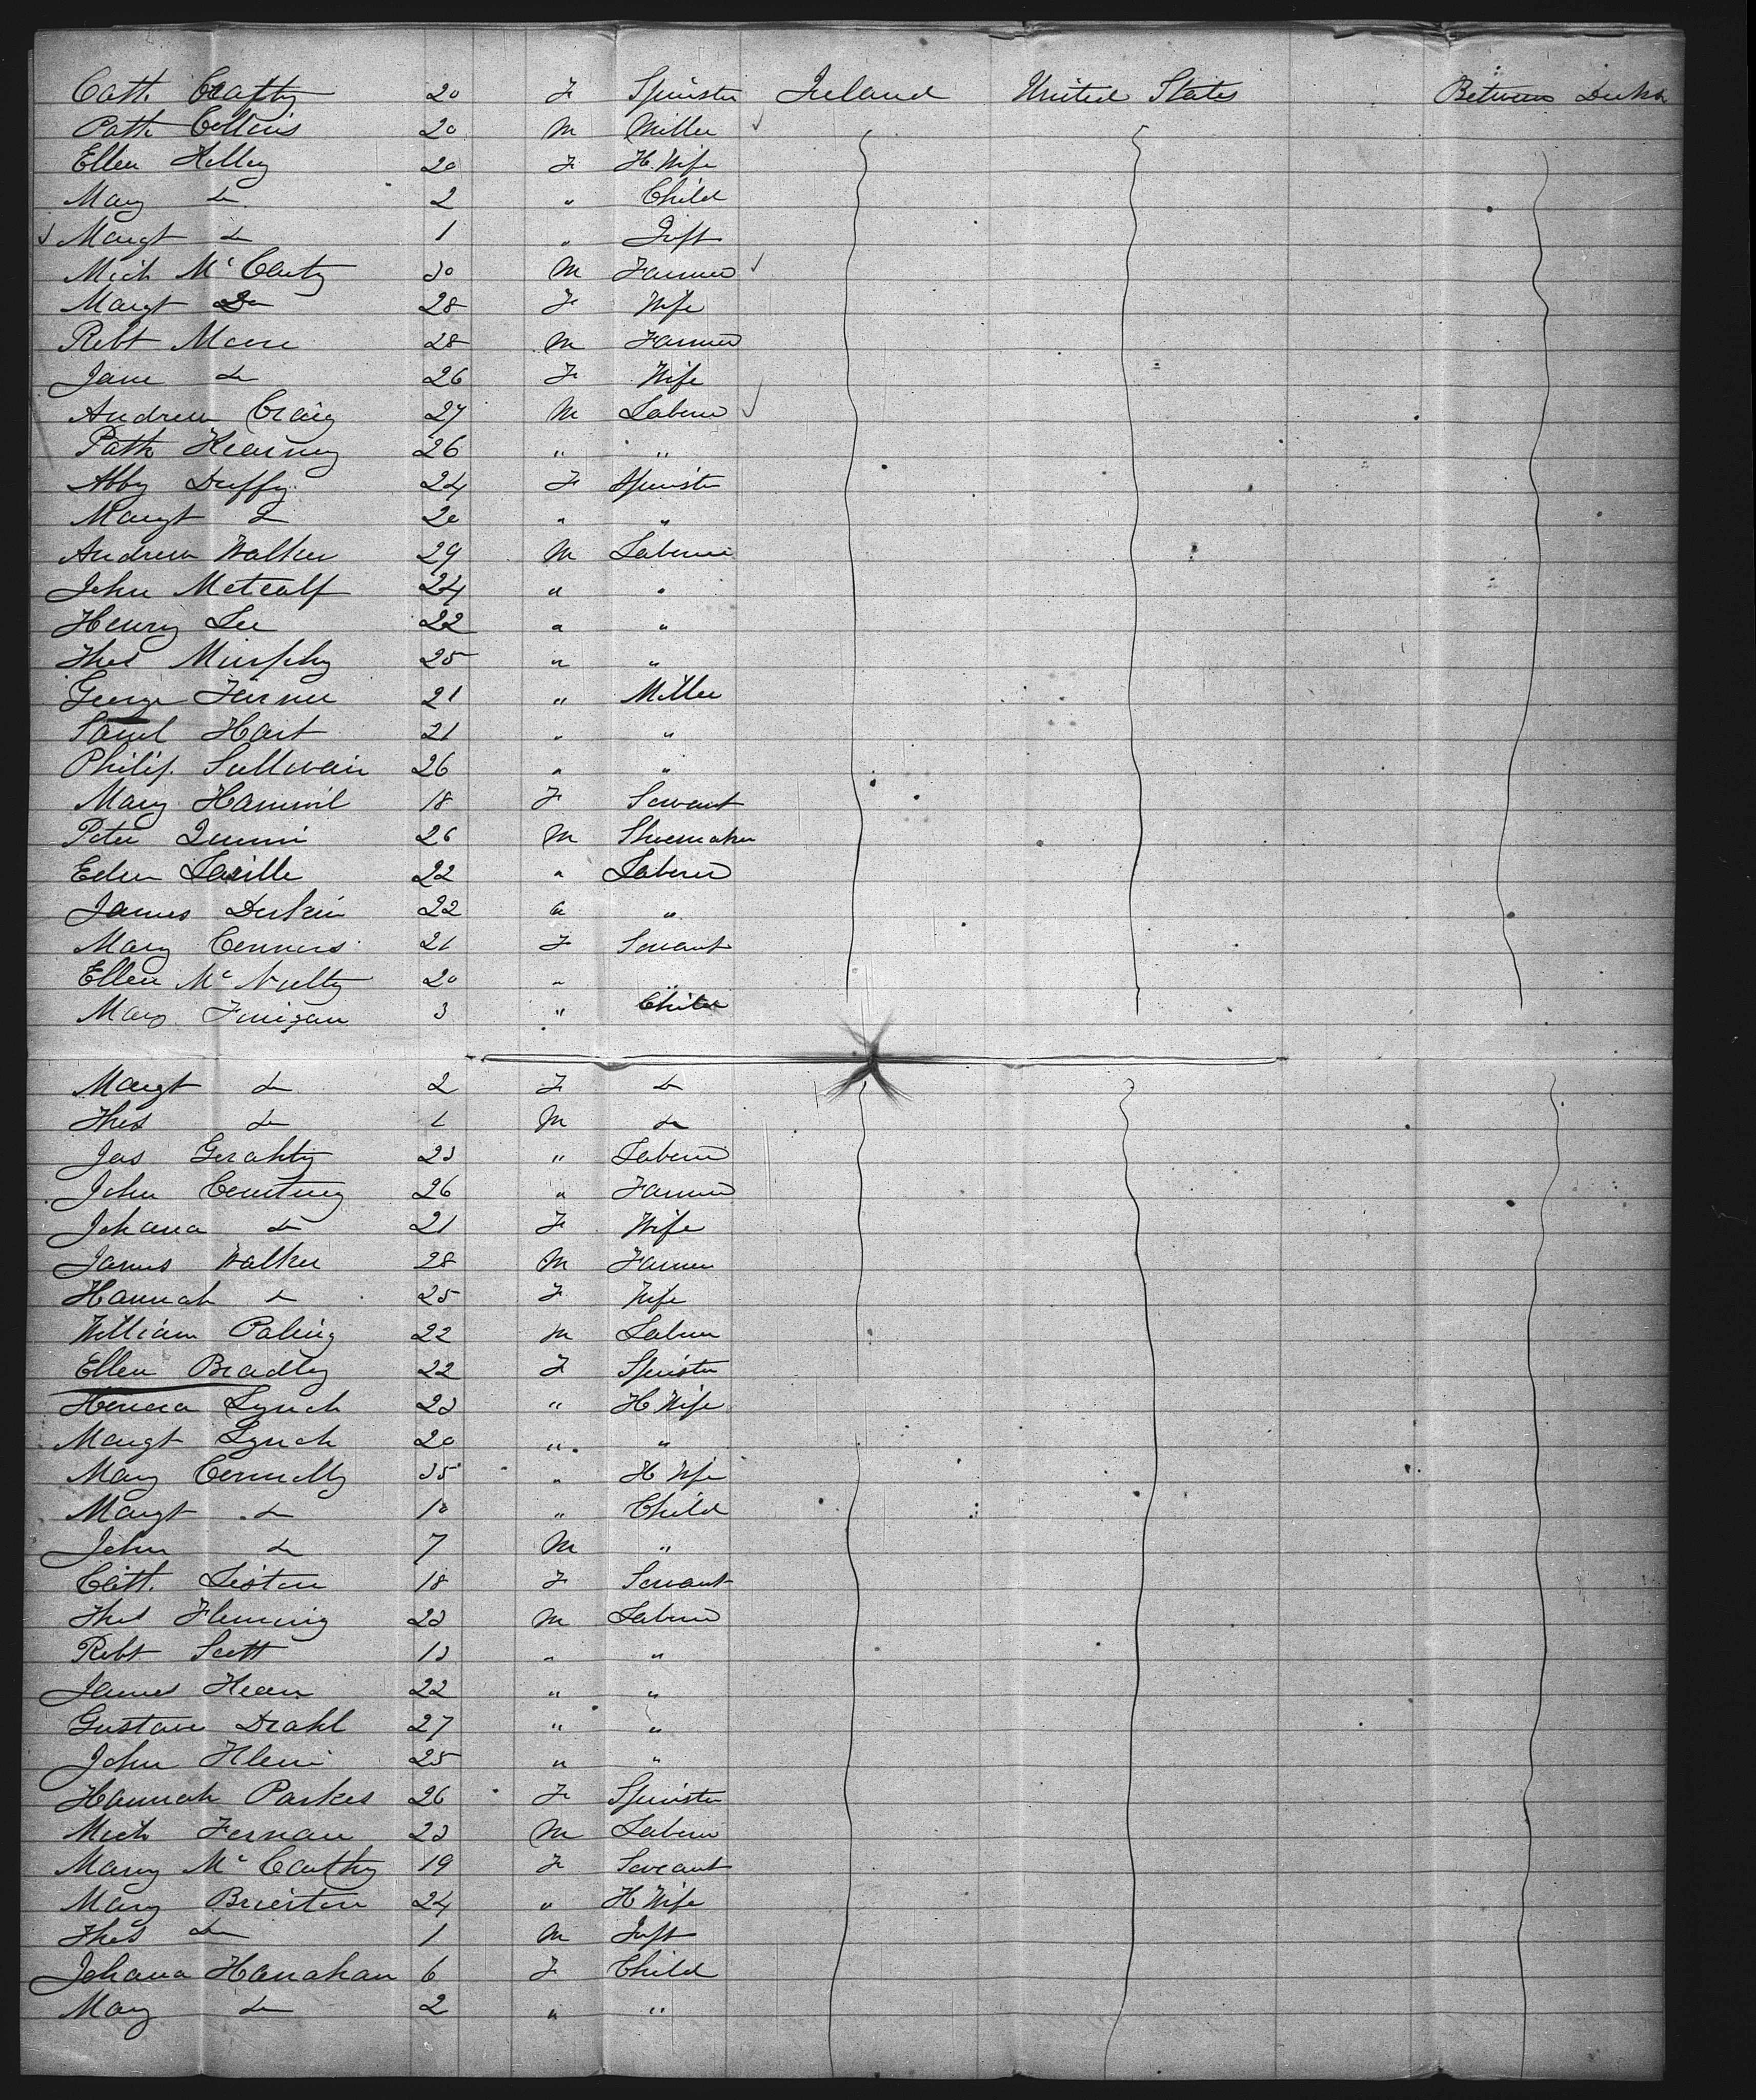 Cath. Crafty 20 F Spinster Ireland United States Between Decks
Patk Collins 20 M Miller
Ellen Kelley 20 F H. Wife
Mary do 2 " Child
Margt do 1 " Inft
Mich McCarty 30 M Farmer
Margt Do 28 F Wife
Robt Moore 28 M Farmer
Jane do 26 F Wife
Andrew Craig 27 M Laborer
Patk Kearney 26 " "
Abby Duffy 24 F Spinster
Margt do 20 " "
Andrew Walker 29 M Laborer
John Metcalf 24 " "
Henry Lee 22 " "
Thos Murphy 25 " "
George 21 " Miller
Saml Hart 21 " "
Philip Sullivan 26 " "
Mary Hammil 18 F Servant
Peter Quinn 26 M Shoemaker
22 " Laborer
James Durkin 22 " "
Mary Connors 21 F Servant
Ellen McNulty 20 " "
Mary Finigan 3 " Child
Margt do 2 F do
Thos do 1 M do
Jas Gerahty 23 " Laborer
John Courtney 26 " Farmer
Johana do 21 F Wife
James Walker 28 M Farmer
Hannah do 25 F Wife
William Paling 22 M Labrer
Ellen Bradly 22 F Spinster
Honora Lynch 23 " H Wife
Margt Lynch 20 " "
Mary Connelly 35 " H Wife
Margt do 10 " Child
John do 7 M "
Cath. Liston 18 F Servant
Thos Fleming 23 M Laborer
Robt Scott 13 " "
James Kean 22 " "
Gustave Drahl 27 " "
John Klein 25 " "
Hannah Parkes 26 F Spinster
Mich Fernan 23 M Laborer
Mary McCarthy 19 F Servant
Mary Brierton 24 " H Wife
Thos do 1 M Inft
Johana Hanahan 6 F Child
Mary do 2 " "